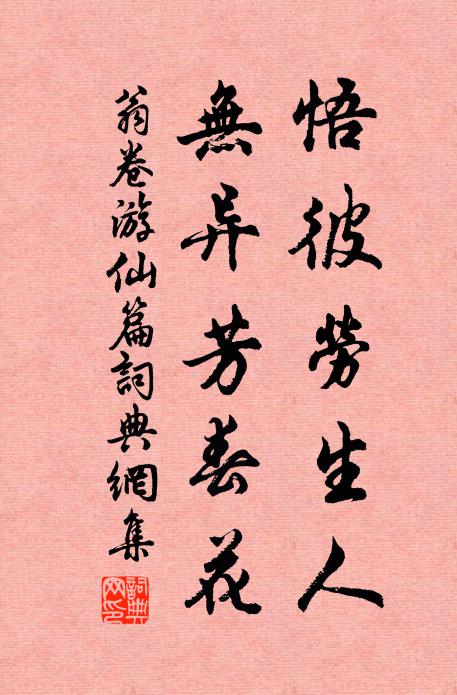 悟彼勞生人
無异芳春花
翁卷游仙篇詞典網集
詞典網印